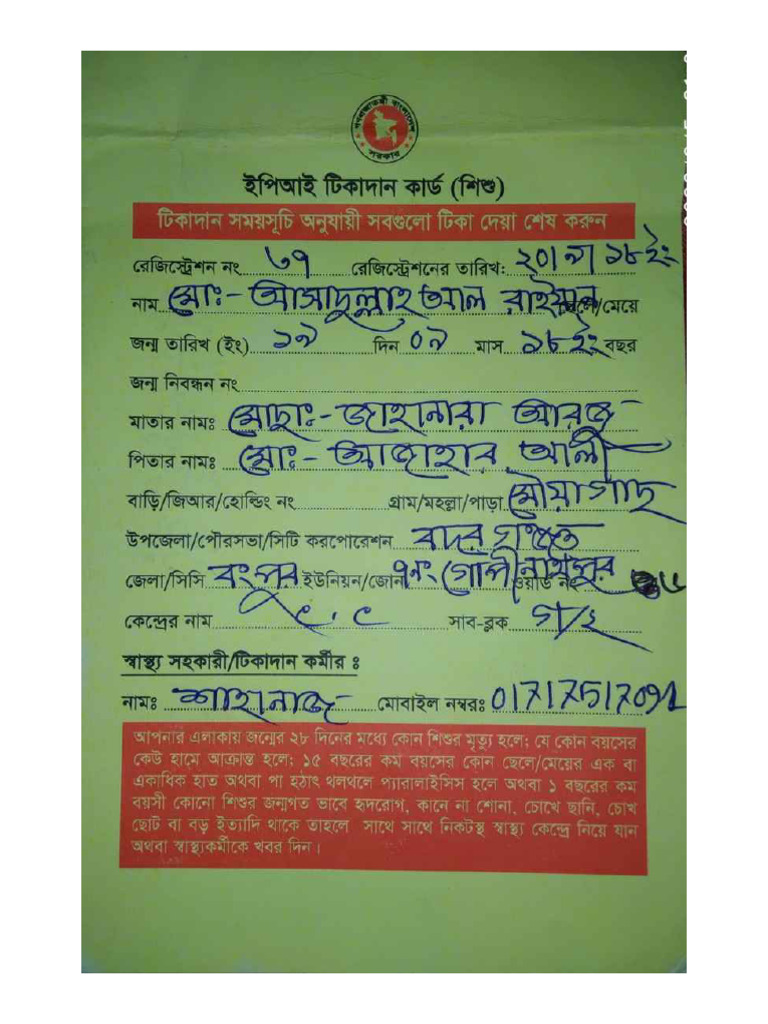 গণপ্রজাতন্ত্রী বাংলাদেশ
সরকার
ইপিআই টিকাদান কার্ড (শিশু)
টিকাদান সময়সূচি অনুযায়ী সবগুলো টিকা দেয়া শেষ করুন
রেজিস্ট্রেশন নং ৩৭ রেজিস্ট্রেশনের তারিখ: ১৮ ইং
নাম মোঃ- আসাদুল্লাহ আল রাইয়ান ছেলে/মেয়ে
জন্ম তারিখ (ইং) ১৯ দিন ০৯ মাস ১৮ ইং বছর
জন্ম নিবন্ধন নং
মাতার নামঃ মোছাঃ- জাহানারা
পিতার নামঃ মোঃ- আজাহার আলী
বাড়ি/জিআর/হোল্ডিং নং গ্রাম/মহল্লা/পাড়া মৌয়াগাছ
উপজেলা/পৌরসভা/সিটি করপোরেশন বদরগঞ্জ
জেলা/সিসি রংপুর ইউনিয়ন/জোন ৭নং গোপীনাথপুর ওয়ার্ড নং
কেন্দ্রের নাম সাব-ব্লক গ/২
স্বাস্থ্য সহকারী/টিকাদান কর্মীর ঃ
নামঃ শাহানাজ মোবাইল নম্বরঃ 01717517091
আপনার এলাকায় জন্মের ২৮ দিনের মধ্যে কোন শিশুর মৃত্যু হলে; যে কোন বয়সের
কেউ হামে আক্রান্ত হলে; ১৫ বছরের কম বয়সের কোন ছেলে/মেয়ের এক বা
একাধিক হাত অথবা পা হঠাৎ থলথলে প্যারালাইসিস হলে অথবা ১ বছরের কম
বয়সী কোনো শিশুর জন্মগত ভাবে হৃদরোগ, কানে না শোনা, চোখে ছানি, চোখ
ছোট বা বড় ইত্যাদি থাকে তাহলে সাথে সাথে নিকটস্থ স্বাস্থ্য কেন্দ্রে নিয়ে যান
অথবা স্বাস্থ্যকর্মীকে খবর দিন।